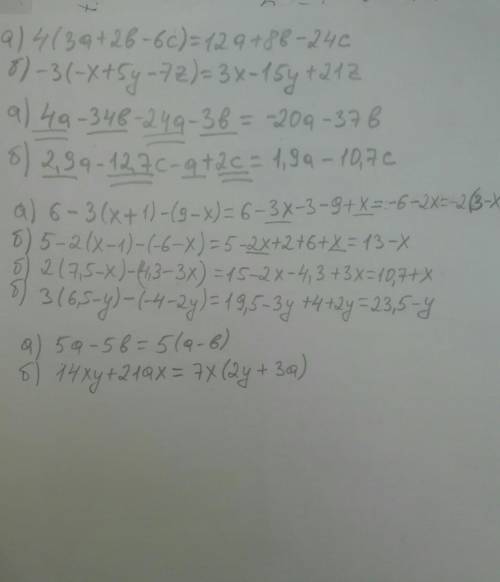 а) 4(3а+2в-6с)=12а+8в-24с
б) -3(-x+5y-7z)=3x-15y+21z
а) 4а-34в-24а-3в=-20а-37в
б) 2,9а-12,7с-а+2с=1,9а-10,7с
а) 6-3(x+1)-(9-x)=6-3x-3-9+x=-6-2x=-2(3-x
б) 5-2(x-1)-(-6-x)=5-2x+2+6+x=13-x
б) 2(7,5-x)-(4,3-3x)=15-2x-4,3+3x=10,7+x
б) 3(6,5-y)-(-4-2y)=19,5-3y+4+2y=23,5-y
а) 5а-5в=5(а-в)
б) 14xy+21ax=7x(2y+3a)